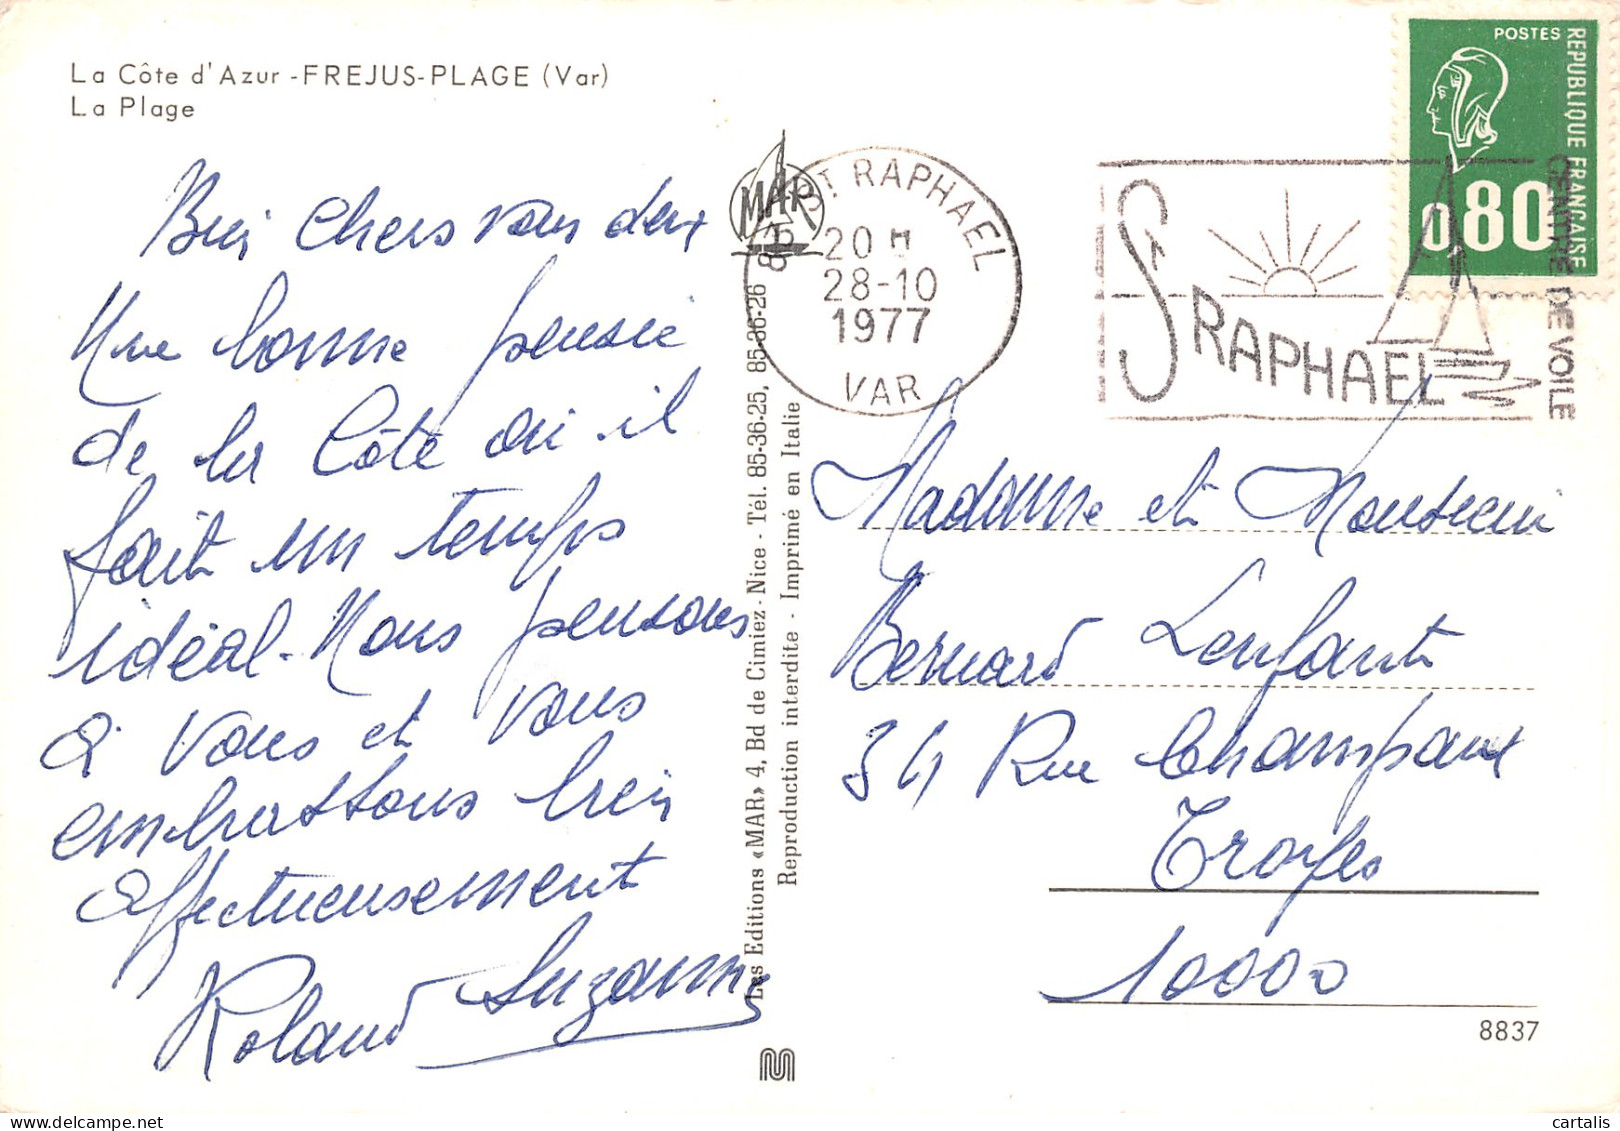 La Côte d'Azur - FREJUS-PLAGE (Var)
La Plage
Bien Chers vous deux
Une bonne pensée
de la Côte où il
fait un temps
idéal. Nous pensons
à vous et vous
embrassons bien
affectueusement
Roland Suzanne
MAR
Les Editions «MAR» 4, Bd de Cimiez - Nice - Tél. 85-36-25, 85-36-26
Reproduction interdite - Imprimé en Italie
M
83 ST RAPHAEL
20 H
28-10
1977
VAR
ST RAPHAEL
CENTRE DE VOILE
POSTES
REPUBLIQUE FRANCAISE
0,80
Madame et Monsieur
Bernard Lenfant
34 Rue Champeaux
Troyes
10000
8837
cartalis
cartalis